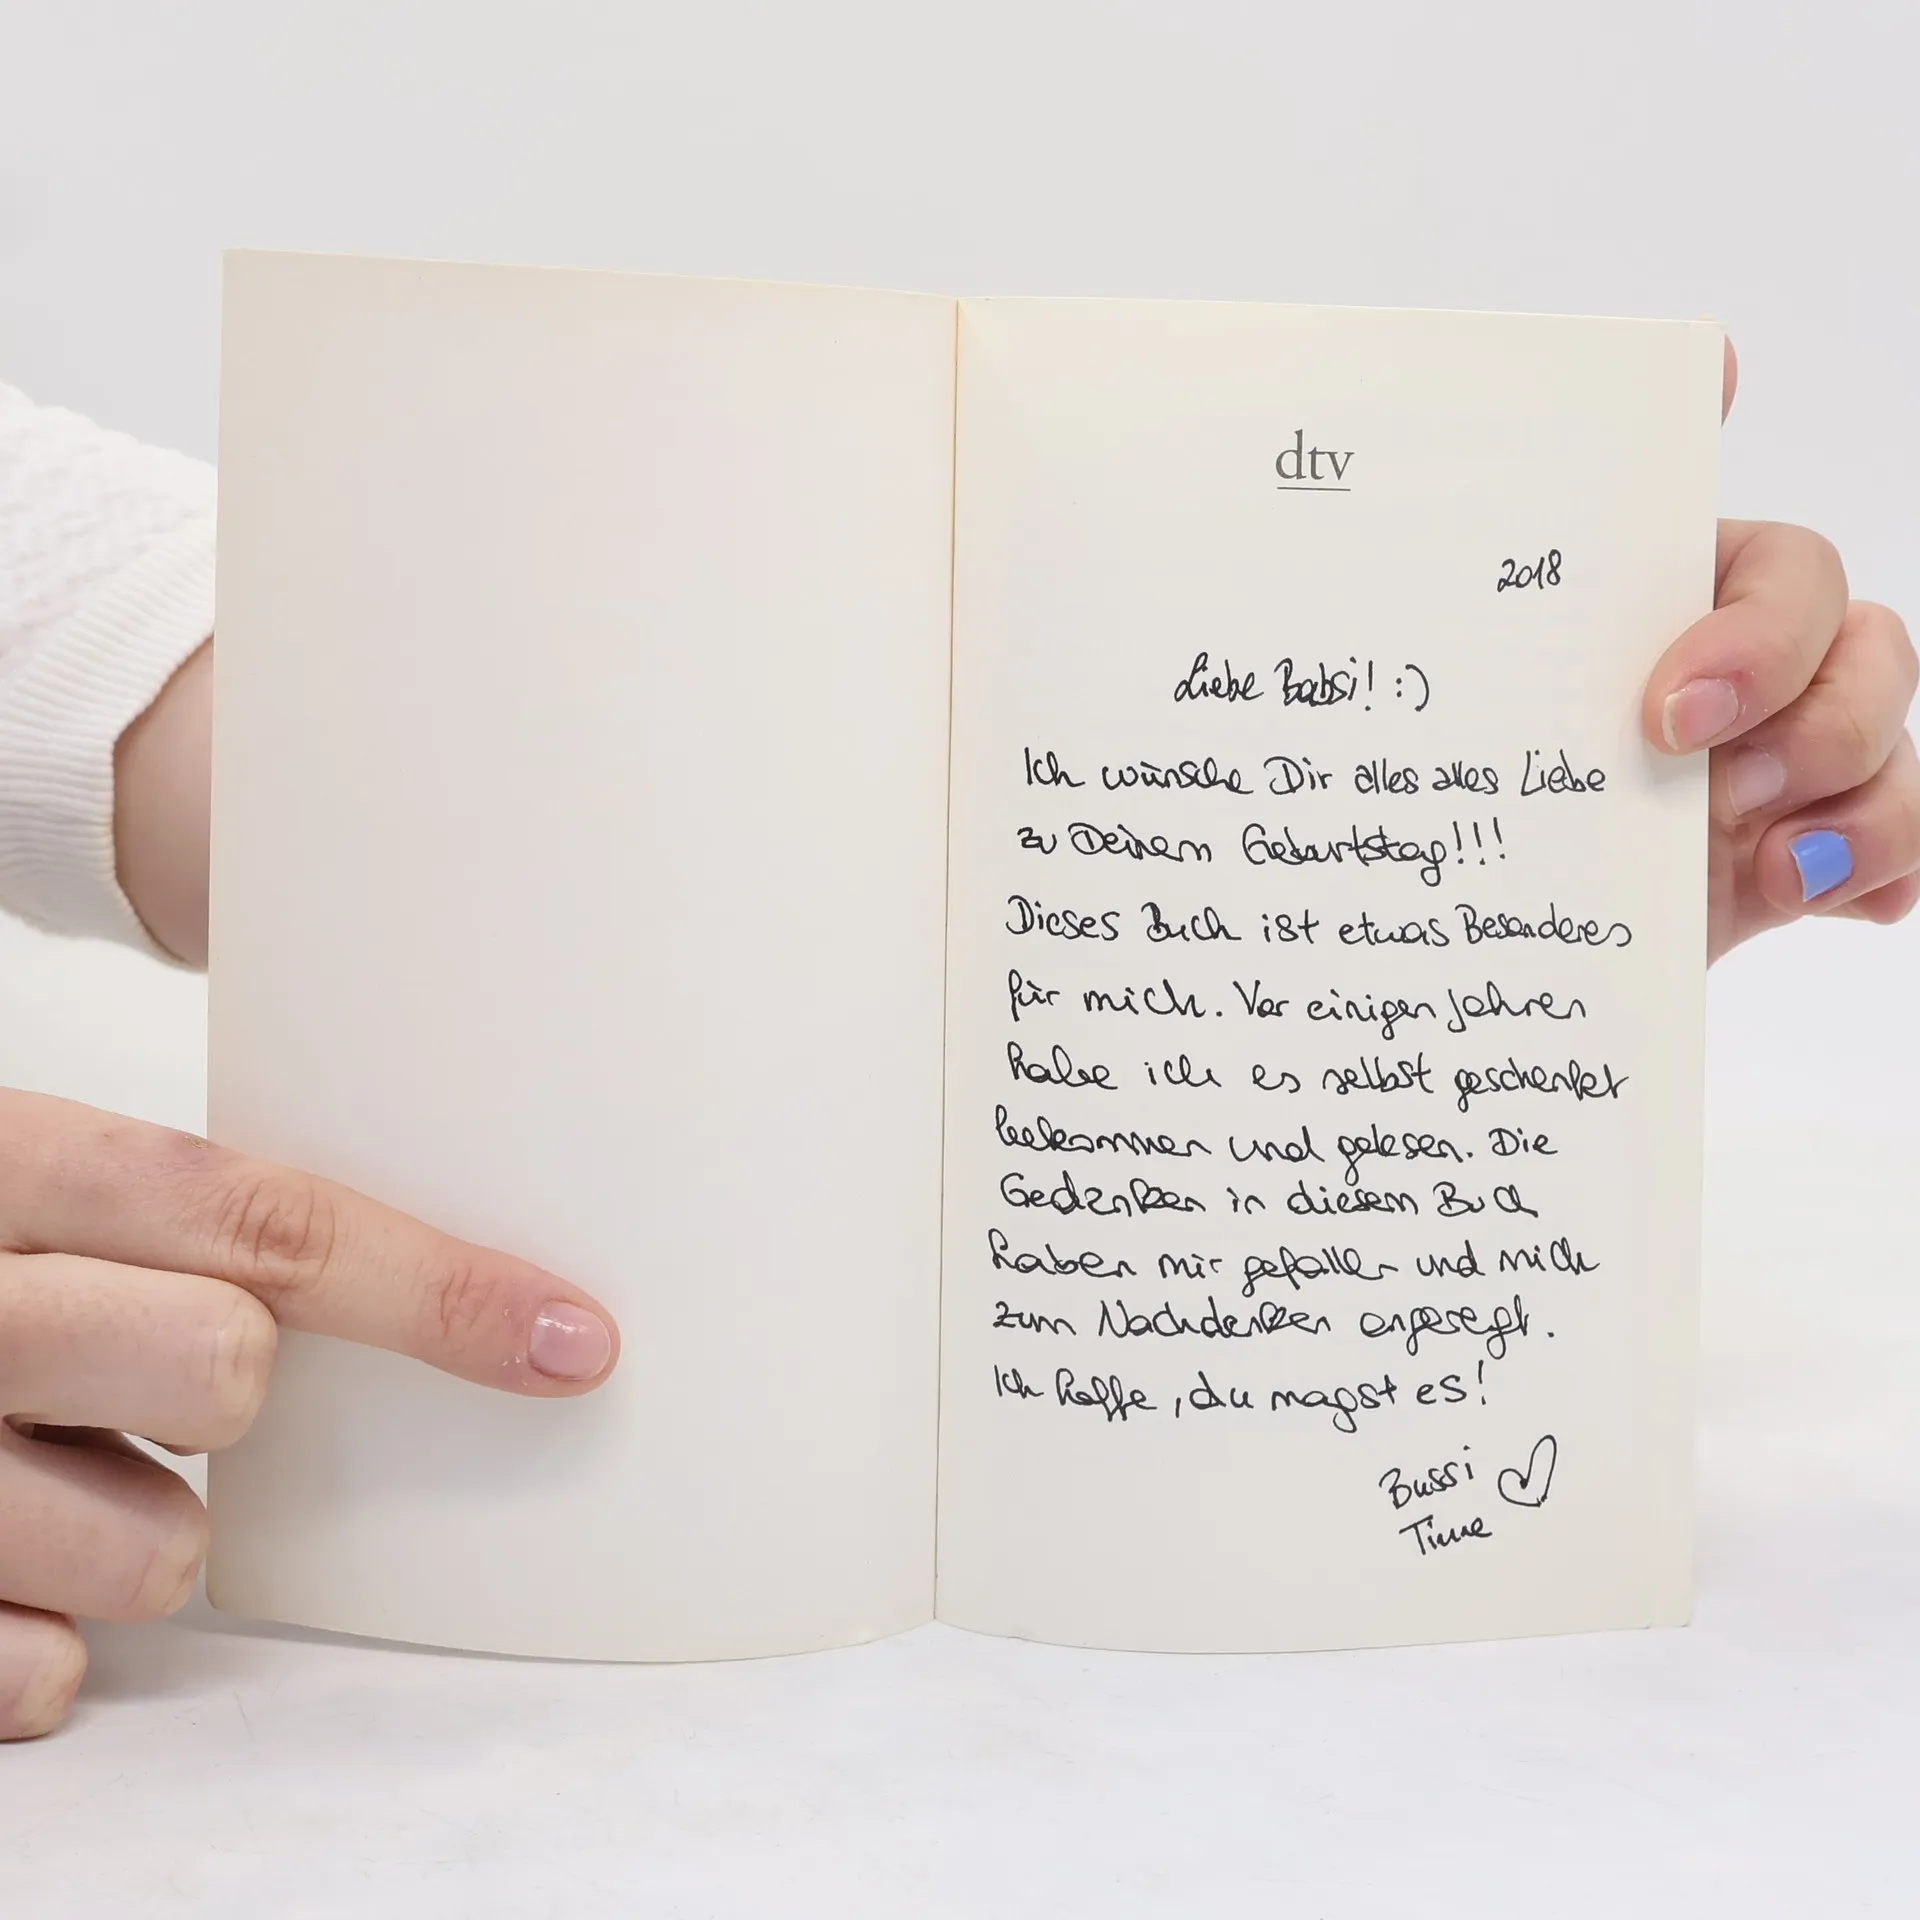 dtv
2018
Liebe Babsi! :)
Ich wünsche Dir alles alles Liebe
zu Deinem Geburtstag!!!
Dieses Buch ist etwas Besonderes
für mich. Vor einigen Jahren
habe ich es selbst geschenkt
bekommen und gelesen. Die
Gedanken in diesem Buch
haben mir gefallen und mich
zum Nachdenken angeregt.
Ich hoffe, du magst es!
Bussi ♡